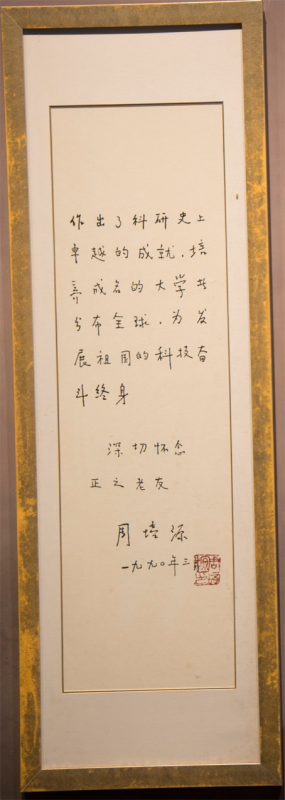 作出了科研史上
卓越的成就，培
养成名的大学者
分布全球，为发
展祖国的科技奋
斗终身
深切怀念
正之老友
周培源
一九九〇年三